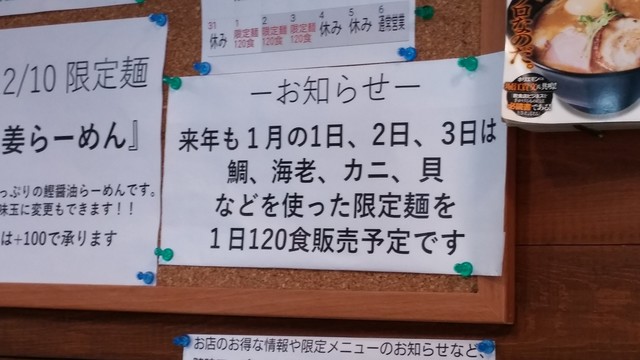 31 1 2 3 4 5 6
休み 限定麺 限定麺 限定麺 休み 休み 通常営業
120食 120食 120食
2/10 限定麺
姜らーめん』
っぷりの鰹醤油らーめんです。
味玉に変更もできます！！
は+100で承ります
－お知らせ－
来年も１月の1日、2日、３日は
鯛、海老、カニ、貝
などを使った限定麺を
１日120食販売予定です
お店のお得な情報や限定メニューのお知らせなど、